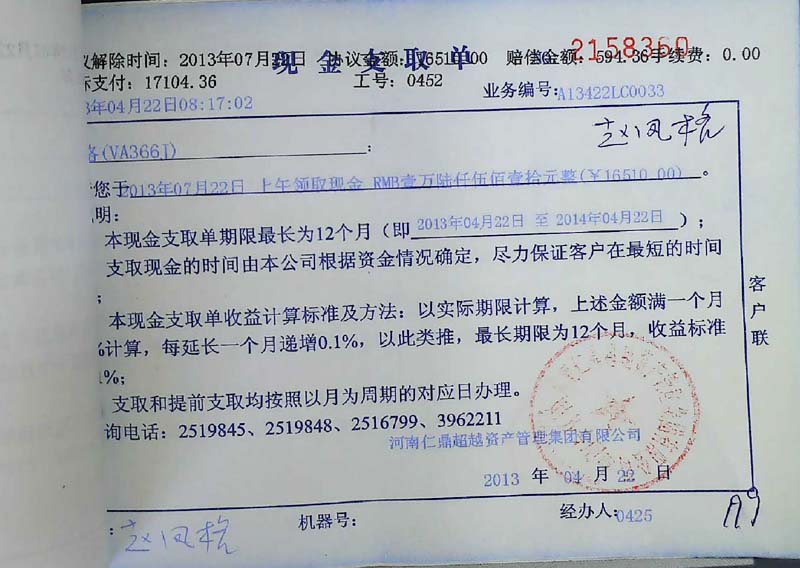 现金支取单 2158360
议解除时间：2013年07月22日 协议金额：16510.00 赔偿金额：594.36手续费：0.00
际支付：17104.36 工号：0452
3年04月22日08:17:02 业务编号：A13422LC0033
赵凤格
各(VA366J)：
您于2013年07月22日 上午领取现金 RMB壹万陆仟伍佰壹拾元整(￥16510.00)。
明：
本现金支取单期限最长为12个月（即2013年04月22日 至 2014年04月22日）；
支取现金的时间由本公司根据资金情况确定，尽力保证客户在最短的时间
；
本现金支取单收益计算标准及方法：以实际期限计算，上述金额满一个月
%计算，每延长一个月递增0.1%，以此类推，最长期限为12个月，收益标准
%；
支取和提前支取均按照以月为周期的对应日办理。
询电话：2519845、2519848、2516799、3962211
河南仁鼎超越资产管理集团有限公司
2013 年 04 月 22 日
客户联
：赵凤格 机器号： 经办人：0425